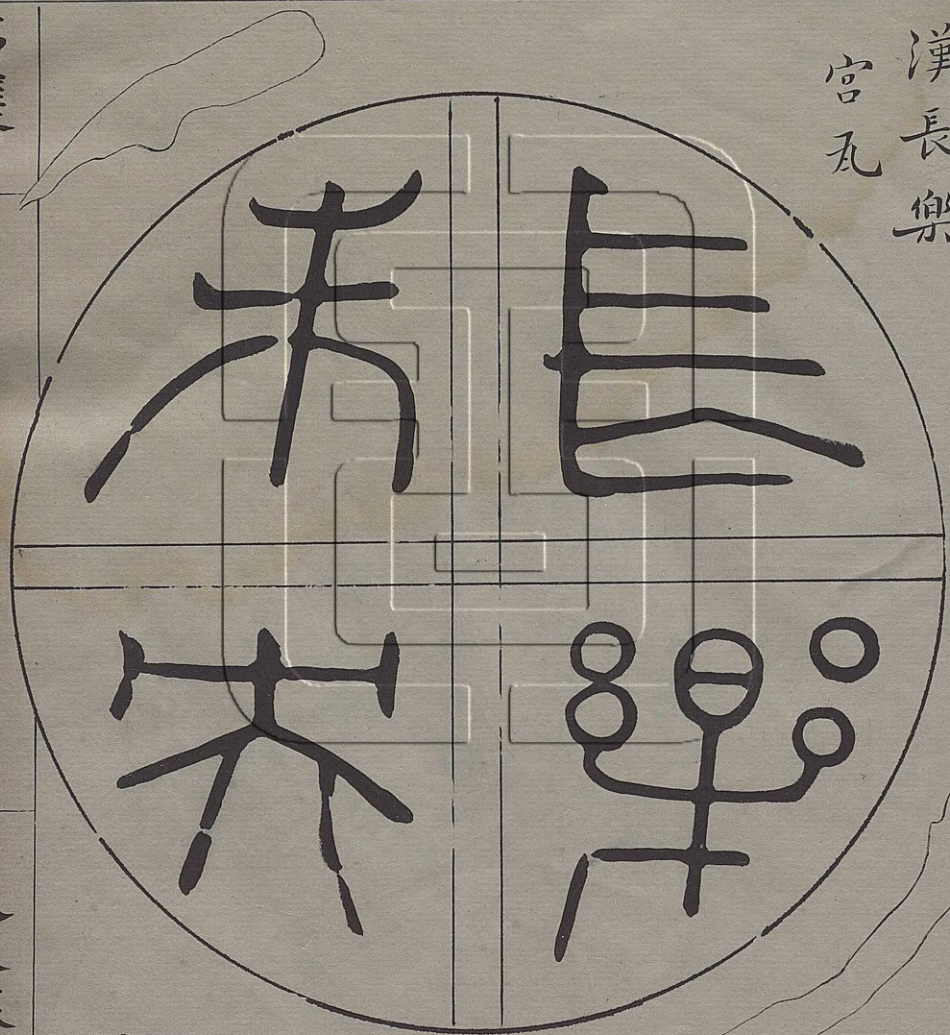 漢長樂
宮瓦
長樂
未央